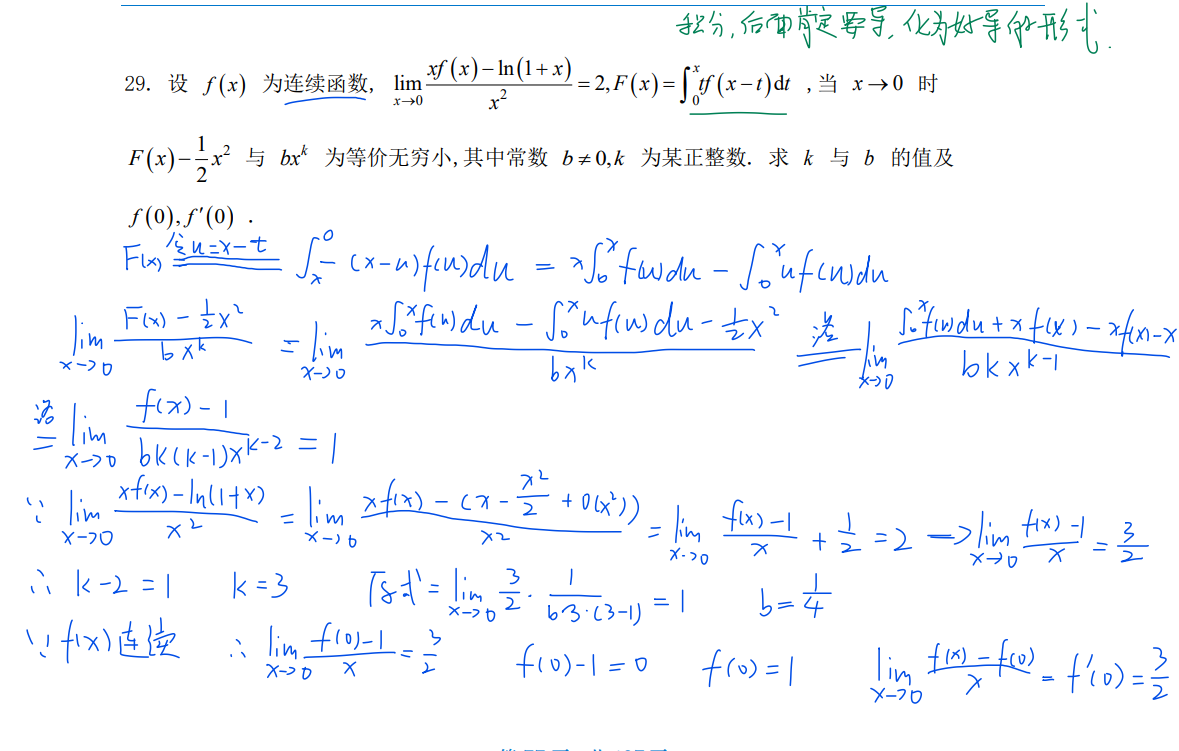 积分,后面肯定要导,化为好导的形式.
29. 设 f(x) 为连续函数, lim_{x→0} (xf(x)−ln(1+x))/x² = 2, F(x) = ∫₀ˣ tf(x−t)dt ,当 x→0 时
F(x)−½x² 与 bxᵏ 为等价无穷小,其中常数 b≠0,k 为某正整数. 求 k 与 b 的值及
f(0),f′(0) .
F(x) 令u=x−t = ∫ₓ⁰ −(x−u)f(u)du = x∫₀ˣ f(u)du − ∫₀ˣ uf(u)du
lim_{x→0} (F(x) − ½x²)/(bxᵏ) = lim_{x→0} (x∫₀ˣ f(u)du − ∫₀ˣ uf(u)du − ½x²)/(bxᵏ) 洛= lim_{x→0} (∫₀ˣ f(u)du + xf(x) − xf(x) − x)/(bkxᵏ⁻¹)
洛= lim_{x→0} (f(x)−1)/(bk(k−1)xᵏ⁻²) = 1
∵ lim_{x→0} (xf(x)−ln(1+x))/x² = lim_{x→0} (xf(x) − (x − x²/2 + o(x²)))/x² = lim_{x→0} (f(x)−1)/x + 1/2 = 2 → lim_{x→0} (f(x)−1)/x = 3/2
∴ k−2=1 k=3 原式 = lim_{x→0} 3/2 · 1/(b·3·(3−1)) = 1 b = 1/4
∵ f(x)连续 ∴ lim_{x→0} (f(0)−1)/x = 3/2 f(0)−1=0 f(0)=1 lim_{x→0} (f(x)−f(0))/x = f′(0) = 3/2